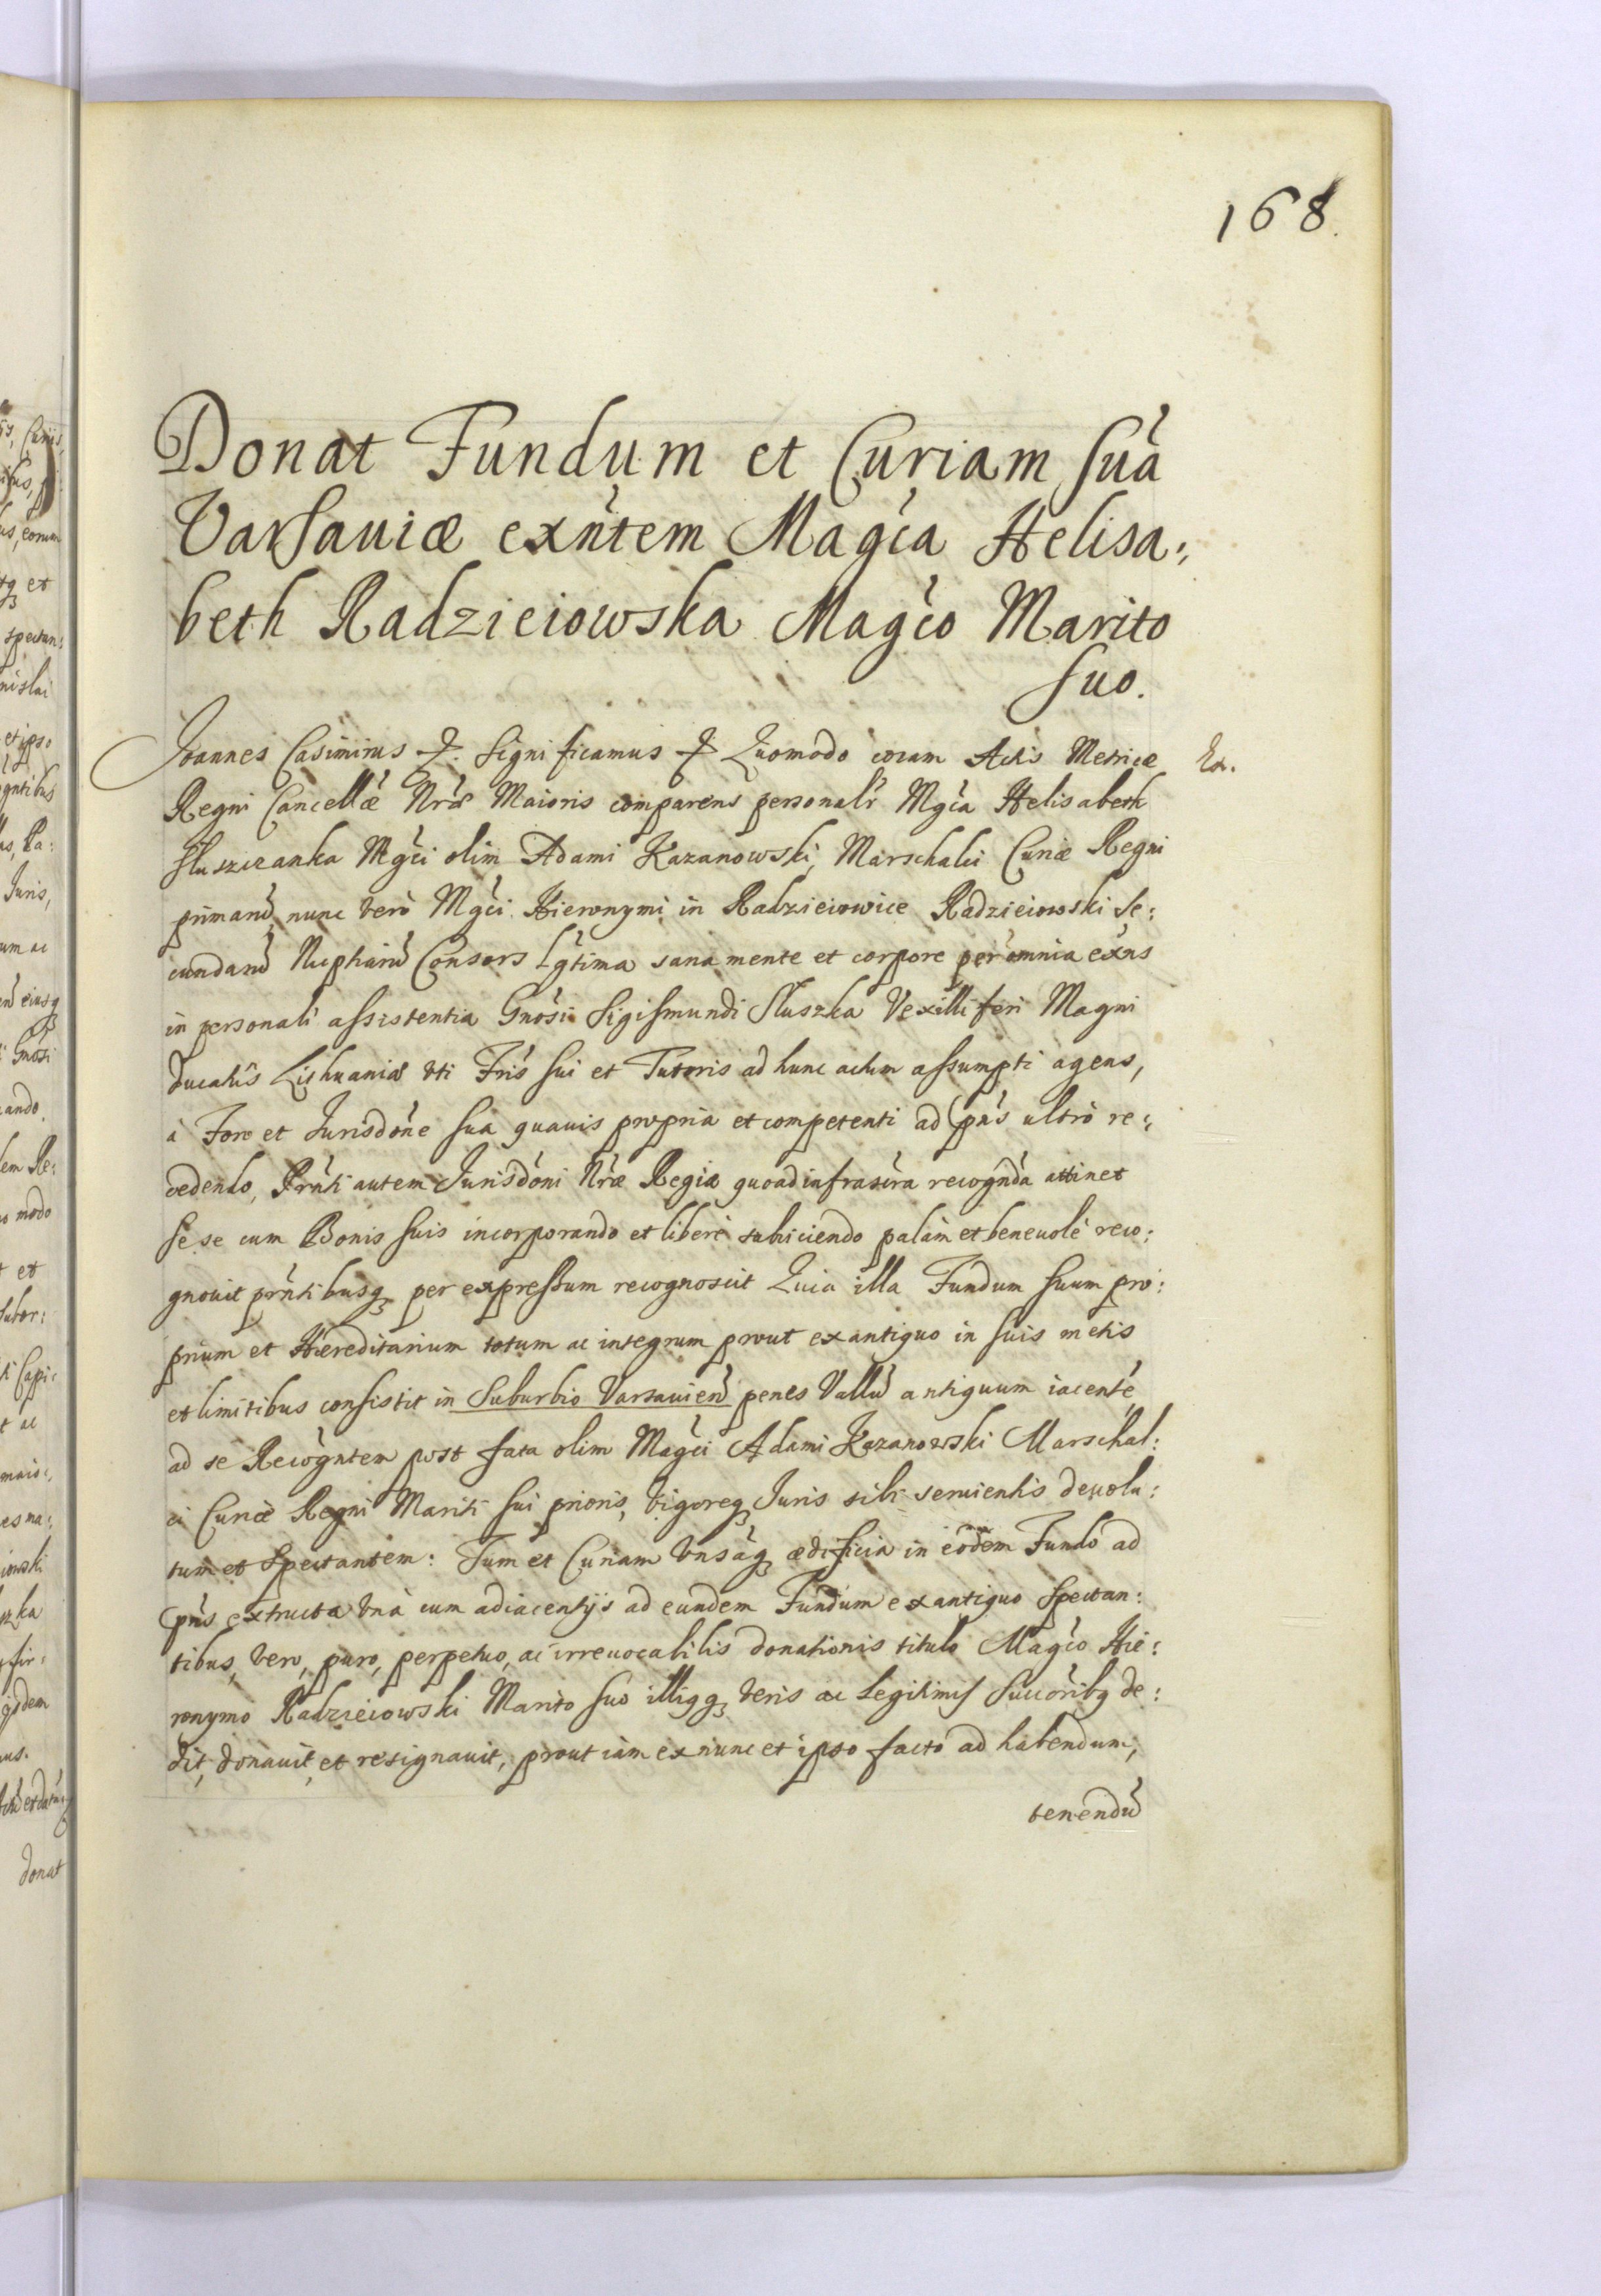 168.
Donat Fundum et Curiam suã
Varsauiæ exñtem Magća Helisa:
beth Radzieiowska Magćo Marito
suo.
Joannes Casimirus &. Significamus & Quomodo coram Actis Metricæ
Ex.
Regni Cancellæ Nræ Maioris comparens personalr Mgća Helisabeth
Sluszczanka Mgći olim Adami Kazanowski, Marschalci Curiæ Regni
primarũ, nunc verò Mgći Hieronymi in Radzieiowice Radzieiowski Se:
cundarũ Nuptiarũ Consors Lgtima sana mente et corpore per omnia exns
in personali assistentia Gnosi Sigismundi Sluszka Vexilliferi Magni
Ducatûs Lithuaniæ vti Fris sui et Tutoris ad hunc actum assumpti agens,
à Foro et Jurisdone sua quauis propria et competenti ad pñs ultrò re:
cedendo, Prñti autem Jurisdoni Nræ Regiæ quoad infrascra recognda attinet
se se cum Bonis suis incorporando et liberè subiiciendo palàm et beneuolè reco:
gnouit prñtibusq per expressum recognoscit Quia illa Fundum suum pro:
prium et Hæreditarium totum ac integrum prout ex antiquo in suis metis
et limitibus consistit in Suburbio Varsauieñ penes Vallũ antiquum iacentẽ,
ad se Recogntem post fata olim Magći Adami Kazanowski Marschal:
ci Curiæ Regni Mariti sui prioris, Vigoreq Juris sibi seruientis deuolu:
tum et Spectantem: Tum et Curiam Vnsaq ædificia in eodem Fundo ad
pñs extructa vnà cum adiacentijs ad eundem Fundum ex antiquo Spectan:
tibus, vero, puro, perpetuo, ac irreuocabilis donationis titulo Magćo Hie:
ronymo Radzieiowski Marito suo illiqq veris ac Legitimis Successoribq de:
dit, donauit, et resignauit, prout iam ex nunc et ipso facto ad habendum,
tenendũ